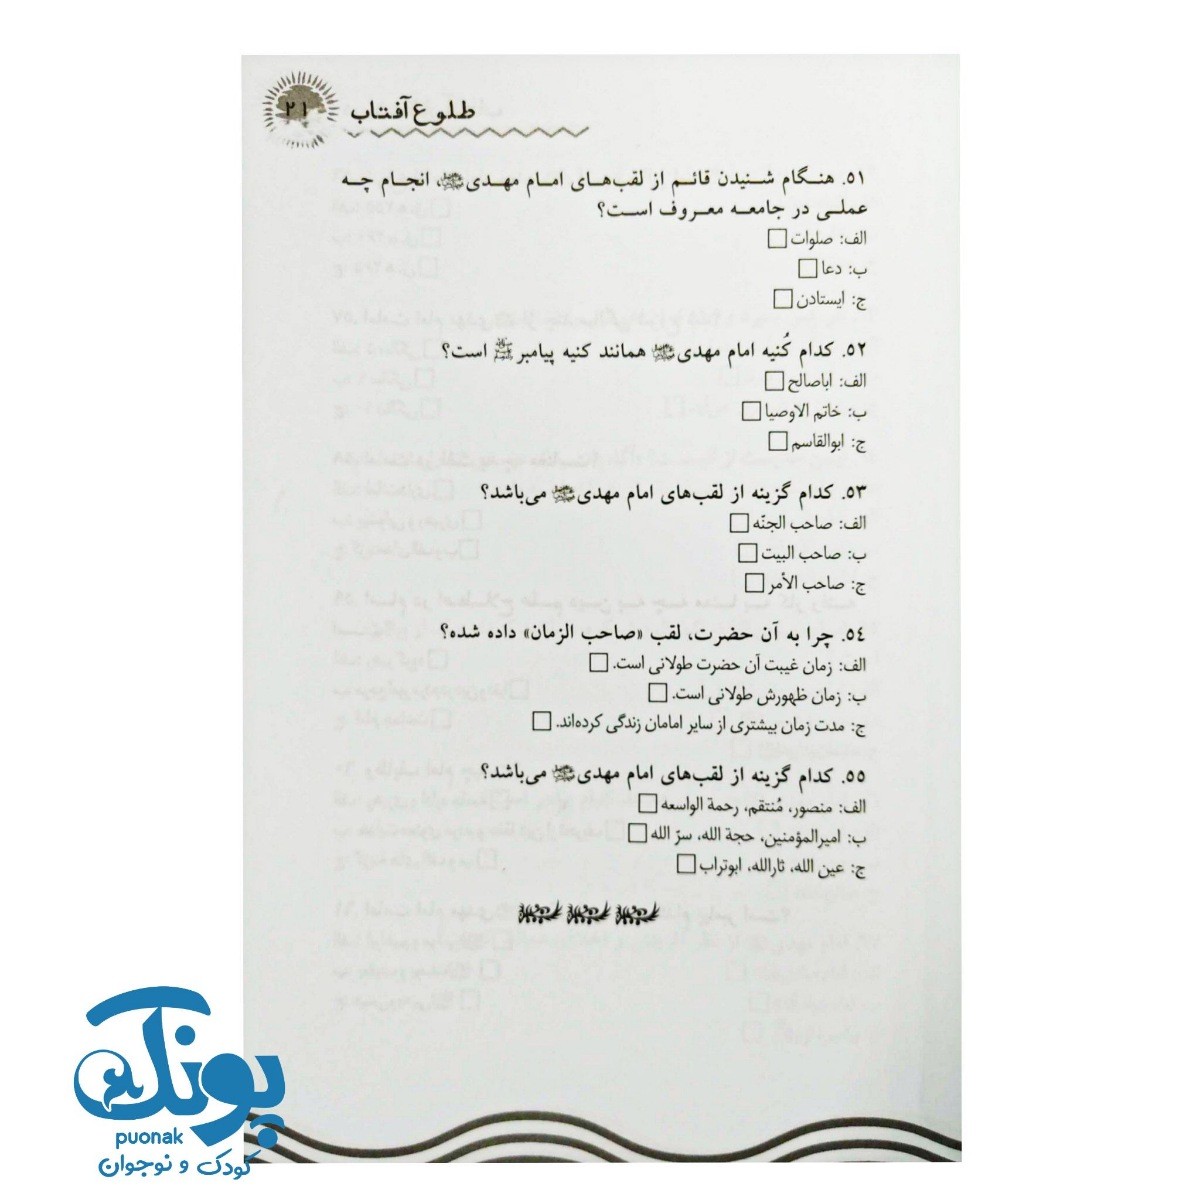 طلوع آفتاب
۲۱
۵۱. هنگام شنیدن قائم از لقب‌های امام مهدی، انجام چه
عملی در جامعه معروف است؟
الف: صلوات
ب: دعا
ج: ایستادن
۵۲. کدام کُنیه امام مهدی همانند کنیه پیامبر است؟
الف: اباصالح
ب: خاتم الاوصیا
ج: ابوالقاسم
۵۳. کدام گزینه از لقب‌های امام مهدی می‌باشد؟
الف: صاحب الجنّه
ب: صاحب البیت
ج: صاحب الأمر
۵٤. چرا به آن حضرت، لقب «صاحب الزمان» داده شده؟
الف: زمان غیبت آن حضرت طولانی است.
ب: زمان ظهورش طولانی است.
ج: مدت زمان بیشتری از سایر امامان زندگی کرده‌اند.
۵۵. کدام گزینه از لقب‌های امام مهدی می‌باشد؟
الف: منصور، مُنتقم، رحمة الواسعه
ب: امیرالمؤمنین، حجة الله، سرّ الله
ج: عین الله، ثارالله، ابوتراب
پونک
puonak
کودک و نوجوان